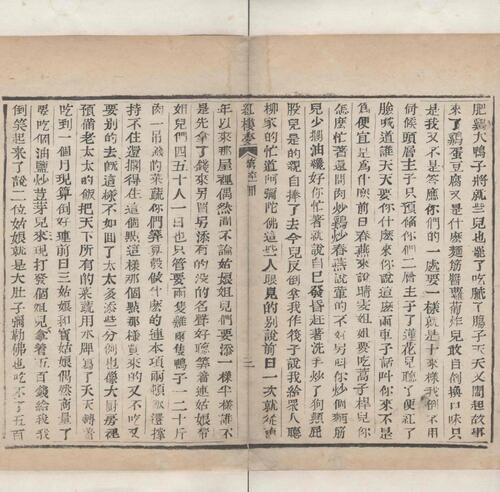 肥雞大鴨子將就些兒也罷了吃膩了腸子天天又鬧起故事
來了雞蛋豆腐又是什麽麵筋醬蘿蔔炸兒敢自倒換口味只
是我又不是答應你們的一處要一樣就是十來樣我倒不用
伺候頭層主子只預俻你們二層主子了蓮花兒聽了便紅了
臉喊道誰天天要你什麽來你說這麽兩車子話叫你來不是
爲便宜是爲什麽前日春燕來說晴雯姐姐要吃蒿子桿兒你
怎麽忙著還問肉炒雞炒春燕說葷的不好另叫你炒個麵筋
兒少擱油纔好你忙著就說自已發昏赶著洗手炒了狗顛屁
股兒是的親自捧了去今兒反倒拿我作筏子說我給衆人聽
柳家的忙道阿彌陀佛這些人眼見的別說前日一次就從舊
紅樓夢 第六十一囘 二
年以來那屋裡偶然間不論姑娘姐兒們要添一樣半樣誰不
是先拿了錢來另買另添有的沒的名聲好聽筭著連姑娘帶
姐兒們四五十人一日也只管要兩隻雞兩隻鴨子一二十斤
肉一吊錢的菜蔬你們筭筭彀做什麽的連本項兩頓飯還撑
持不住還擱得住這個點這樣那個點那樣買來的又不吃又
要別的去旣這樣不如囬了太太多添些分例也像大厨房裡
預備老太太的飯把天下所有的菜蔬用水牌寫了天天轉著
吃到一個月現算倒好連前日三姑娘和寳姑娘偶然商量了
要吃個油鹽炒荳芽兒來現打發個姐兒拿着五百錢給我我
倒笑起來了說二位姑娘就是大肚子彌勒佛也吃不了五百